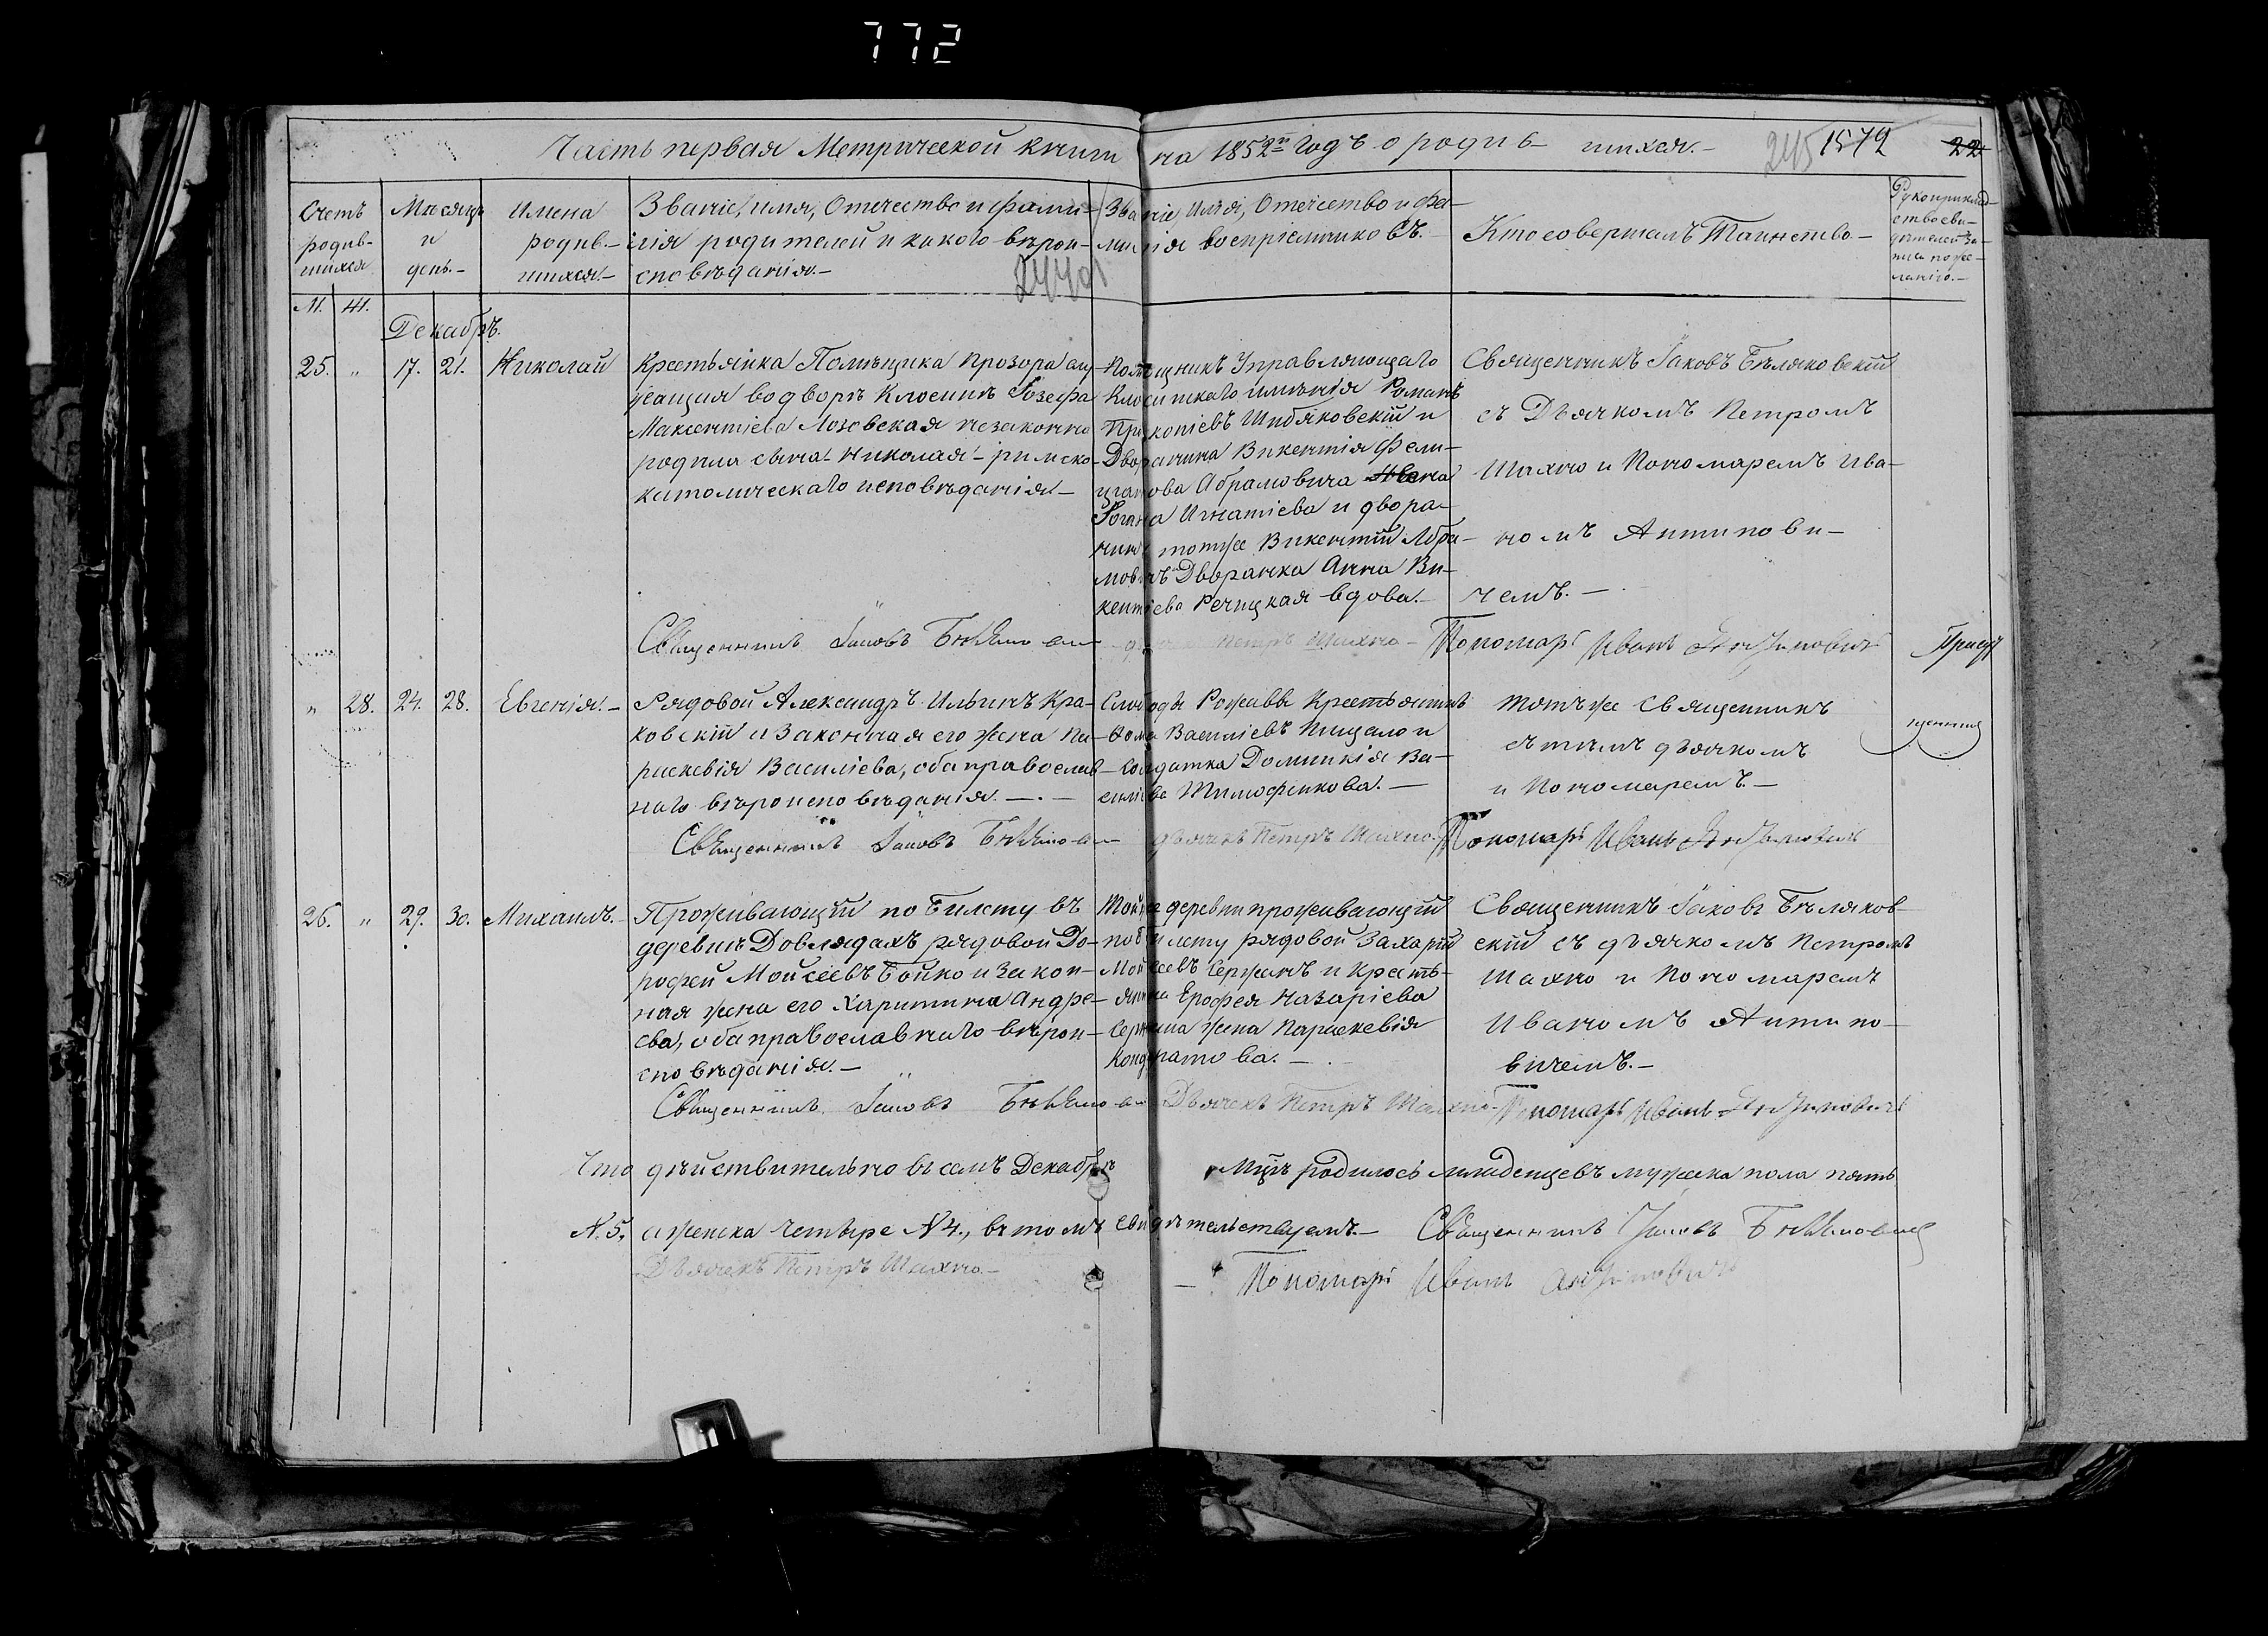 772
Часть первая Метрической книги на 1852й годъ о родив- шихся.-
245 1572 22
Счетъ родив- шихся.
Мѣсяцъ и день.-
Имена родив- шихся.-
Званіе, имя, Отечество и фами-
лія родителей и какого вѣрои-
сповѣданія.-
Званіе Имя, Отечество и Фа-
милія воспріемниковъ.-
Кто совершалъ Таинство-
Рукоприклад-
ство сви-
дѣтелей за-
писи по же-
ланію.-
М. Ж.
Декабрь.
25. „ 17. 21. Николай
Крестьянка Помѣщика Прозора слу
жащая во дворѣ Іозефа
Максентіева Лозовская незаконно
родила сына Николая - римско-
католическаго исповѣданія.-
Помѣщникъ Управляющаго
имѣнія Романъ
Прокопіевъ Шибяковскій и
Дворянина Викентія Фели-
ціанова Абрамовича
Іогана Игнатіева и дворя-
нинъ тотже Викентій Абра-
мовичъ Дворянка Анна Ви-
кентіева Речицкая вдова.-
Священникъ Іаковъ Бѣляковскій
съ Дьячкомъ Петромъ
Шахно и Пономаремъ Ива-
номъ Антипови-
чемъ.-
Священникъ Іаковъ Петръ Шахно- Пономарь Иванъ Антиповичъ
„ 28. 24. 28. Евгенія.-
Рядовой Александръ Ильинъ Кра-
ковскій и Законная его жена Па-
раскевія Василіева, оба православ-
наго вѣроисповѣданія.-.-
Слободы Рожавы Крестьянинъ
Фома Василіевъ Пищало и
солдатка Домникія Ва-
силіева Тимофѣикова.-
Тотъже Священникъ
съ тѣмъ дьячкомъ
и Пономаремъ.-
Священникъ Іаковъ Дьячекъ Петръ Шахно. Пономарь Иванъ Антиповичъ
26. „ 29. 30. Михаилъ.-
Проживающій по Билету въ
деревни Довлядахъ рядовой До-
рофей Мойсеевъ Бойко и Закон-
ная жена его Харитина Андре-
ева, оба православнаго вѣрои-
сповѣданія.-
Тойже деревни проживающій
по билету рядовой Захарій
Мойсеевъ Сержанъ и Кресть-
янина Ерофея Назаріева
жена Параскевія
Кондратова.-
Священникъ Іаковъ Бѣляков-
скій съ дьячкомъ Петромъ
Шахно и Пономаремъ
Иваномъ Антипо-
вичемъ.-
Священникъ Іаковъ Дьячекъ Петръ Шахно- Пономарь Иванъ Антиповичъ
Что дѣйствительно въ семъ Декабрѣ мцѣ родилось младенцевъ мужеска пола пять
N. 5, а женска четыре N 4., въ томъ свидѣтельствуемъ.- Священникъ Іаковъ
Дьячекъ Петръ Шахно.-
Пономарь Иванъ Антиповичъ